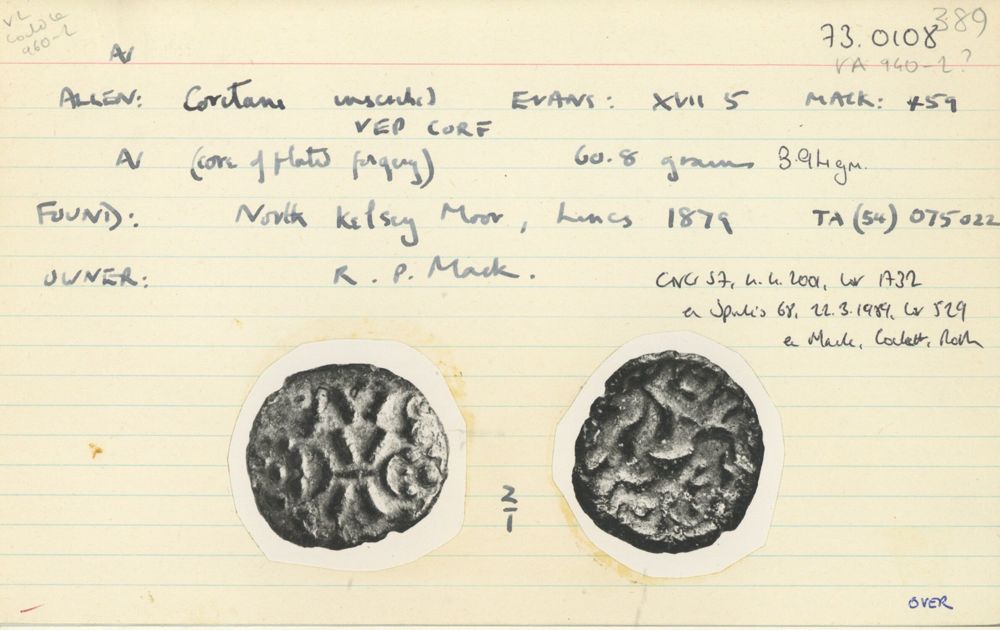 389
73.0108
VA 940-2?
V2
960-2
AV
ALLEN: Coritani inscribed EVANS: XVII 5 MACK: 459
VEP CORF
AV (core of plated forgery) 60.8 grains 3.94gm.
FOUND: North Kelsey Moor, Lincs 1879 TA (54) 075022
OWNER: R. P. Mack.
CNG 57, 4.4.2001, lot 1732
ex Spink's 68, 22.3.1989, lot 529
ex Mack, Lockett, Roth
2
1
OVER